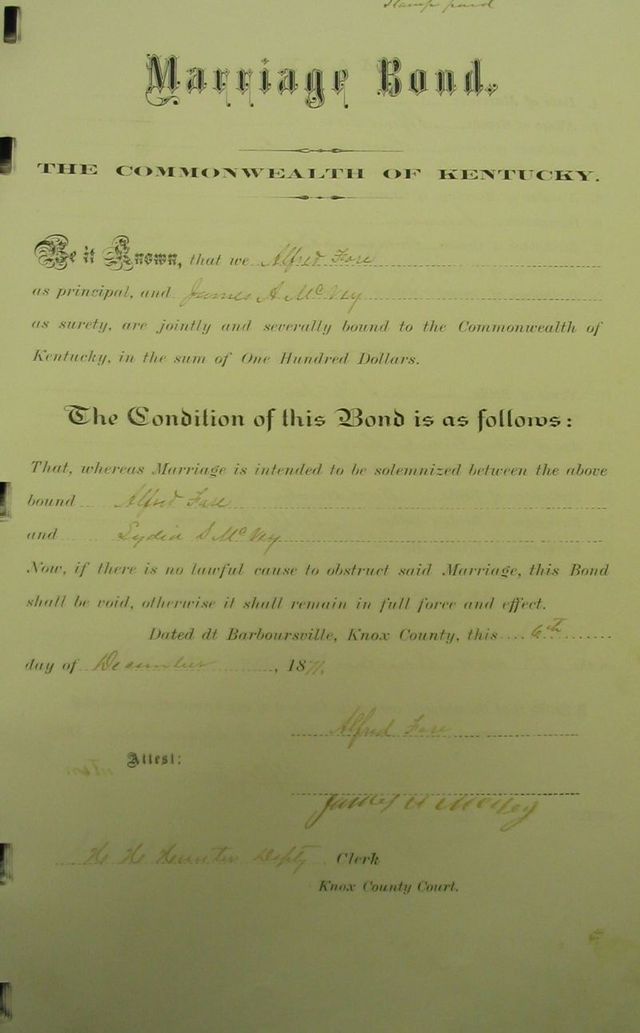 Stamp paid
Marriage Bond.
THE COMMONWEALTH OF KENTUCKY.
Be it Known, that we Alfred Fore
as principal, and James A McVey
as surety, are jointly and severally bound to the Commonwealth of
Kentucky, in the sum of One Hundred Dollars.
The Condition of this Bond is as follows:
That, whereas Marriage is intended to be solemnized between the above
bound Alfred Fore
and Lydia S McVey
Now, if there is no lawful cause to obstruct said Marriage, this Bond
shall be void, otherwise it shall remain in full force and effect.
Dated dt Barboursville, Knox County, this 6th
day of December, 1871.
Alfred Fore
Attest:
James A McVey
Depty Clerk
Knox County Court.